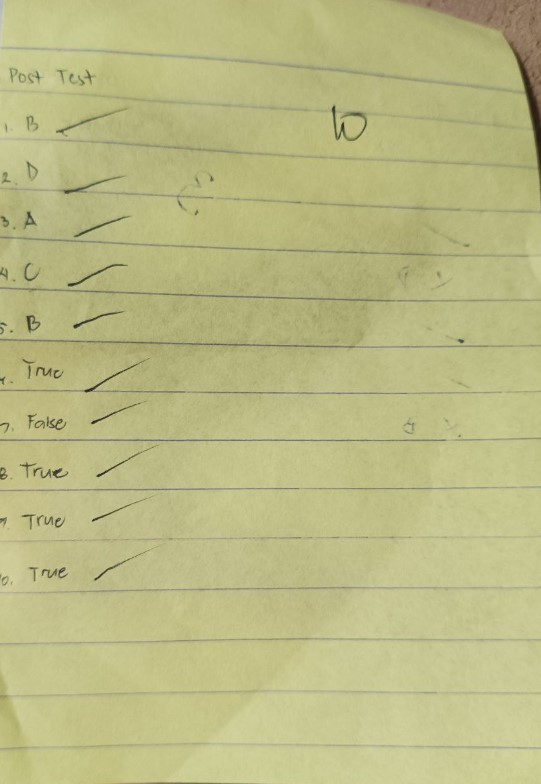 Post Test
10
1. B
2. D
3. A
4. C
5. B
6. True
7. False
8. True
9. True
10. True